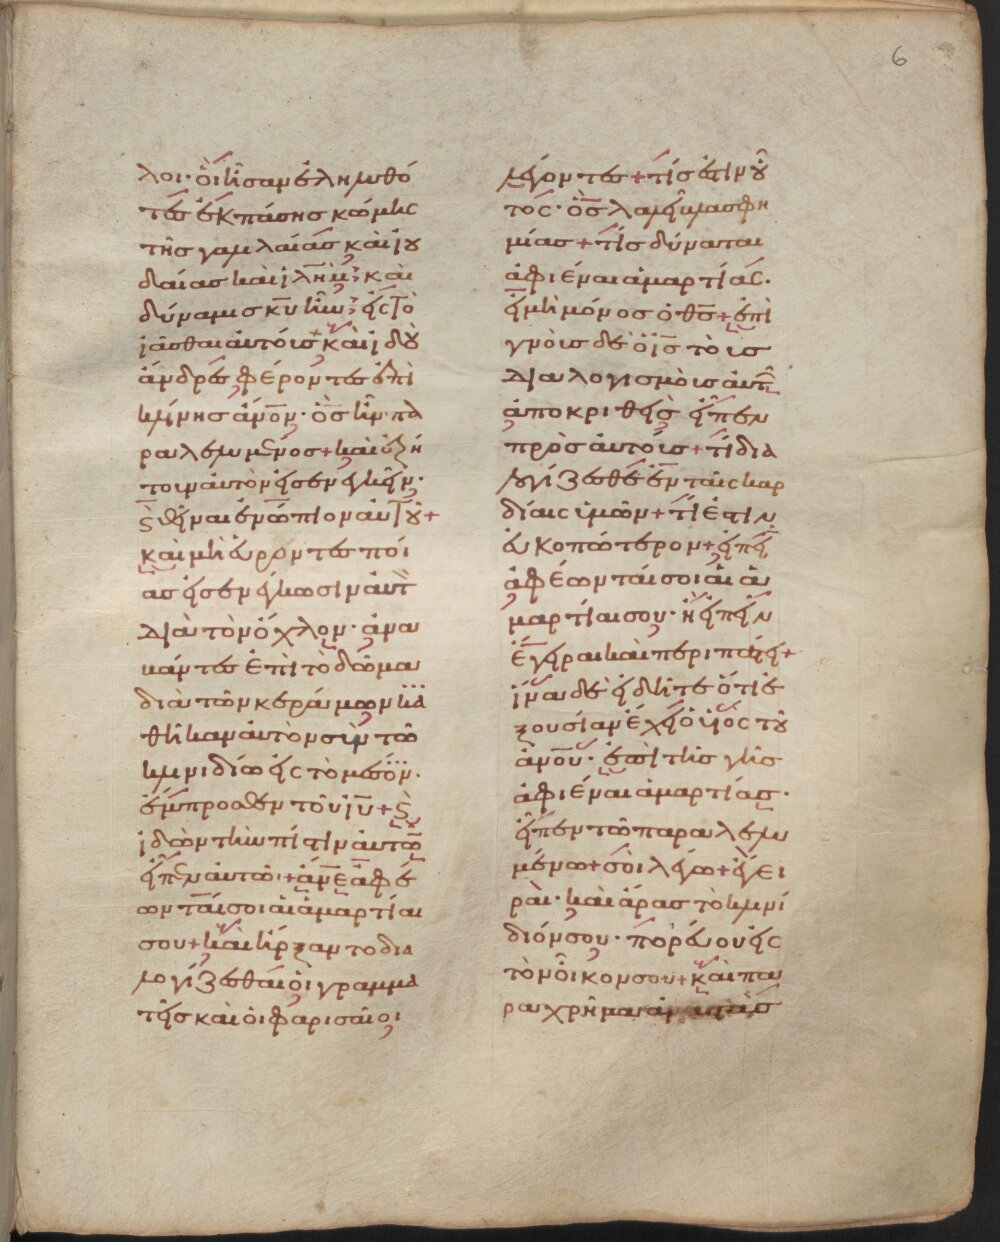 6
λοι· οἳ ἦσαν ἐληλυθό
τες ἐκ πάσης κώμης
τῆς γαλιλαίας καὶ ἰου
δαίας καὶ ἰλῆμ· καὶ
δύναμις κυ ἦν· εἰς τὸ
ἰᾶσθαι αὐτούς + καὶ ἰδοὺ
ἄνδρες φέροντες ἐπὶ
κλίνης ἄνον· ὃς ἦν πα
ραλελυμένος + καὶ ἐζή
τουν αὐτὸν εἰσενεγκεῖν·
ϗ θεῖναι ἐνώπιον αὐτοῦ +
καὶ μὴ εὑρόντες ποί
ας εἰσενέγκωσιν αὐτ
διὰ τὸν ὄχλον· ἀνα
βάντες ἐπὶ τὸ δῶμα
διὰ τῶν κεράμων κα
θῆκαν αὐτὸν σὺν τῶ
κλινιδίω εἰς τὸ μέσον·
ἔμπροσθεν τοῦ ιυ + ϗ
ἰδὼν τὴν πίστιν αὐτῶ
εἶπεν αὐτῶ· + ἄνε ἀφέ
ωνταί σοι αἱ ἁμαρτίαι
σου + καὶ ἤρξαντο δια
λογίζεσθαι οἱ γραμμα
τεῖς καὶ οἱ φαρισαῖοι
λέγοντες + τίς ἐστιν οὗ
τος· ὃς λαλεῖ βλασφη
μίας + τίς δύναται
ἀφιέναι ἁμαρτίας·
εἰ μὴ μόνος ὁ θς + ἐπι
γνοὺς δὲ ὁ ις τοὺς
διαλογισμοὺς αὐτῶ
ἀποκριθεὶς εἶπεν
πρὸς αὐτούς + τί δια
λογίζεσθε ἐν ταῖς καρ
δίαις ὑμῶν + τί ἐστιν
εὐκοπώτερον + εἰπεῖ
ἀφέωνταί σοι αἱ ἁ
μαρτίαι σου· ἢ εἰπεῖν
ἔγειραι καὶ περιπάτει +
ἵνα δὲ εἰδῆτε ὅτι ἐ
ξουσίαν ἔχει ὁ υἱὸς τοῦ
ἀνου· ἐπὶ τῆς γῆς
ἀφιέναι ἁμαρτίας·
εἶπεν τῶ παραλελυ
μένω + σοὶ λέγω + ἔγει
ραι· καὶ ἄρας τὸ κλινί
διόν σου· πορεύου εἰς
τὸν οἶκον σου + καὶ πα
ραχρῆμα ἀναστὰς